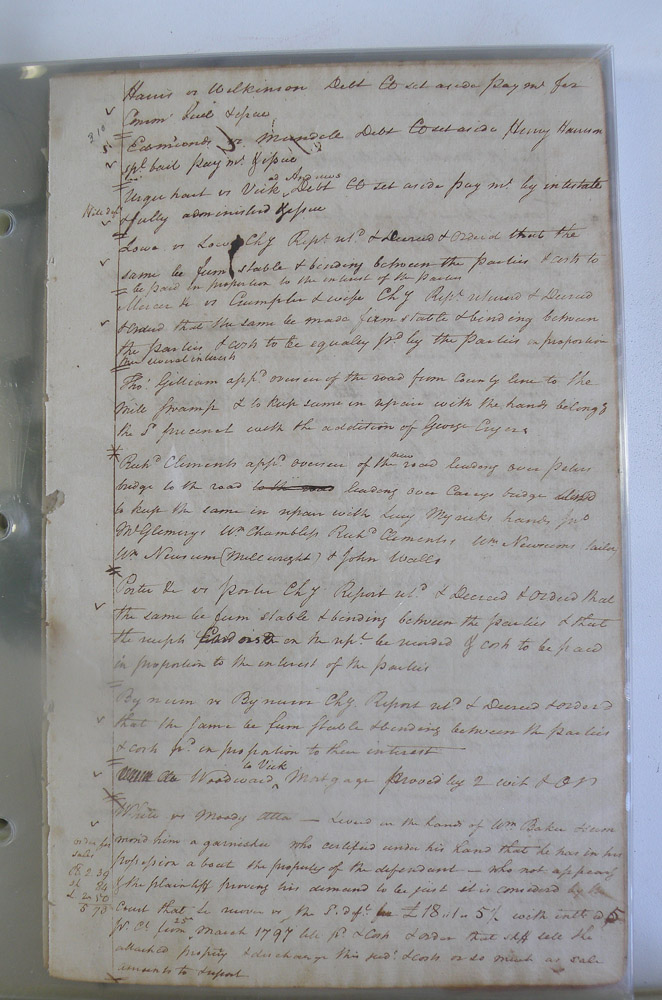 Harris vs Wilkinson Debt CO set aside paymt for
Comm bail & issue
Edmonds vs Mundele Debt CO set aside Henry Harrison
spl bail paymt & issue
Urquhart vs Vick ad Andrews Debt CO set aside paymt by intestate
& fully administed & issue
Lowe vs Lowe Chy Rept retd & Decreed & Ordered that the
same be firm stable & binding between the parties & costs to
be paid in proportion to the interest of the Parties
Mercer &c vs Crumpler & wife Chy Rept returned & Decreed
& ordered that the same be made firm stable & binding between
the parties & costs to be equaley pd by the Parties in proportion
their several interests
Thos Gilliam appd overseer of the road from County line to the
Mill Swamp & to keep same in repair with the hands belongg
the sd precinct with the addition of George
Richd Clements appd overseer of the new road leading over Peters
bridge to the road to the road leading over Careys bridge
to keep the same in repair with Lucy Myricks hands Jno
McGlemurys Wm Chambliss Richd Clements Wm Newsums tailor
Wm Newsum (Millwright) & John Walls
Porter &c vs Porter Chy Report retd & Decreed & Ordered that
the same be firm stable & binding between the parties & that
the receipts Endorsed on the rept be recorded & costs to be paid
in proportion to the interest of the parties
Bynum vs Bynum Chy Report retd & Decreed & ordered
that the same be firm stable & binding between the parties
& costs pd in proportion to their interest
Woodward to Vick Mortgage proved by 2 wit & OR
White vs Moody Atta — Levied in the hands of Wm Baker & sum
mond him a garnishee who certified under his hand that he has in his
possession about the property of the defendant — who not appearg
& the plaintiff proving his demand to be just it is considered by the
Court that he recover vs the sd deft £18..1..5½ with int
pr Ct from 25 March 1797 till pd & Costs & order that shff sell the
attached property & discharge this judt & costs or so much as sale
amounts to & report
order for
sales